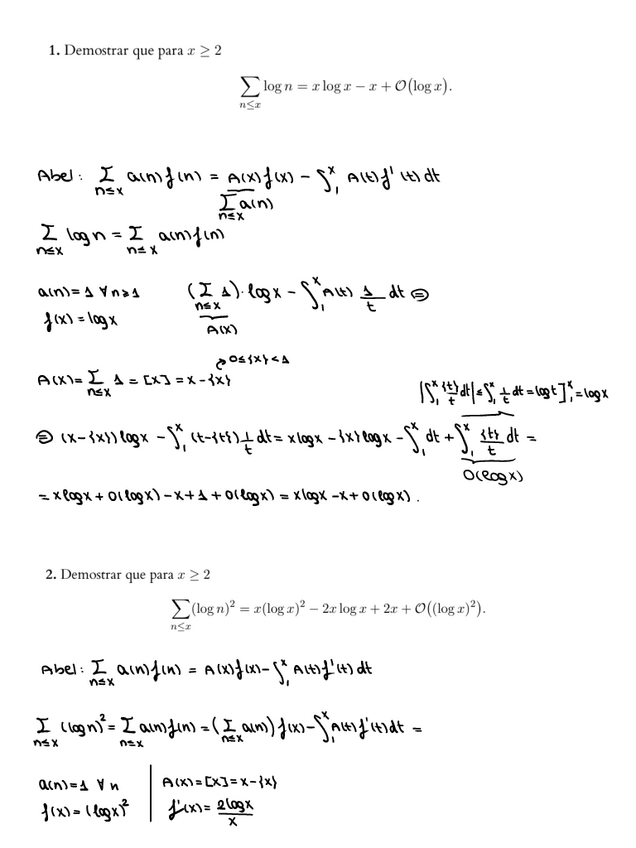 1. Demostrar que para x ≥ 2
∑_{n≤x} log n = x log x − x + O(log x).
Abel: ∑_{n≤x} a(n)f(n) = A(x)f(x) − ∫_1^x A(t)f'(t)dt
∑_{n≤x} a(n)
∑_{n≤x} log n = ∑_{n≤x} a(n)f(n)
a(n)=1 ∀n≥1 (∑_{n≤x} 1)·log x − ∫_1^x A(t) 1/t dt =
f(x)=log x A(x)
0≤{x}<1
A(x)=∑_{n≤x} 1 = [x] = x−{x}
|∫_1^x {t}/t dt| ≤ ∫_1^x 1/t dt = log t]_1^x = log x
= (x−{x})log x − ∫_1^x (t−{t}) 1/t dt = x log x − {x}log x − ∫_1^x dt + ∫_1^x {t}/t dt =
O(log x)
= x log x + O(log x) − x + 1 + O(log x) = x log x − x + O(log x).
2. Demostrar que para x ≥ 2
∑_{n≤x} (log n)² = x(log x)² − 2x log x + 2x + O((log x)²).
Abel: ∑_{n≤x} a(n)f(n) = A(x)f(x) − ∫_1^x A(t)f'(t)dt
∑_{n≤x} (log n)² = ∑_{n≤x} a(n)f(n) = (∑_{n≤x} a(n)) f(x) − ∫_1^x A(t)f'(t)dt =
a(n)=1 ∀n | A(x)=[x]=x−{x}
f(x)=(log x)² | f'(x)= 2log x/x